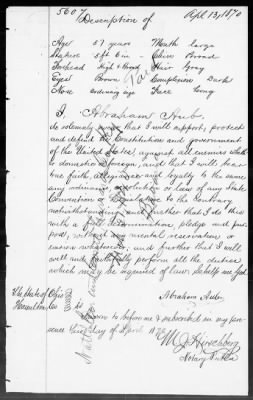 5607
Description of
Apl 13, 1870
Age 57 years Mouth large
Stature 5 ft 6 in Chin Broad
Forehead High & Broad Hair Gray
Eyes Brown Complexion Dark
Nose ordinary size Face Long
I, Abraham Aub.
do solemnly that I will support, protect
and defend the Constitution and government
of the United States, against all enemies whether
or domestic or foreign, and that I will bear
true faith, allegiance and loyalty to the same
any ordinance, resolution or law of any State
Convention or Legislature to the Contrary
notwithstanding, and further that I do this
with a full determination, pledge and pur-
pose, without any mental reservation or
evasion whatsoever, and further that I will
well and faithfully perform all the duties
which may be required of law. So help me God
Abraham Aub
The State of Ohio
Hamilton Co
Sworn to before me & subscribed in my pre-
sence this day of April 1870
Notary Public